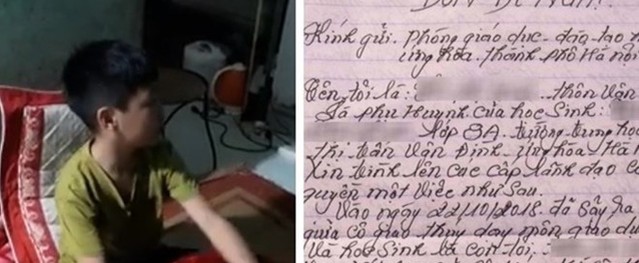 Kính gửi. Phòng giáo dục - đào tạo
ứng hòa. thành phố Hà nội
Tên tôi là: thôn Vân
Là phụ huynh của học Sinh:
lớp 8A. trường trung học
Thị trấn Vân Đình. ứng hòa Hà
Xin trình lên các cấp lãnh đạo có
quyền một việc như Sau.
Vào ngày 22/10/2018. đã sảy ra
giữa cô giáo thuy dạy môn giáo dục
Và học Sinh là con tôi.